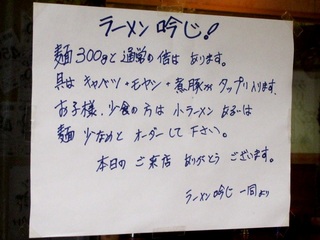 ラーメン吟じ!
麺300gと通常の倍は あります。
具は キャベツ・モヤシ・煮豚が タップリ入ります。
お子様、少食の方は 小ラーメン あるいは
麺 少なめと オーダーして 下さい。
本日の ご来店 ありがとう ございます。
ラーメン吟じ 一同より